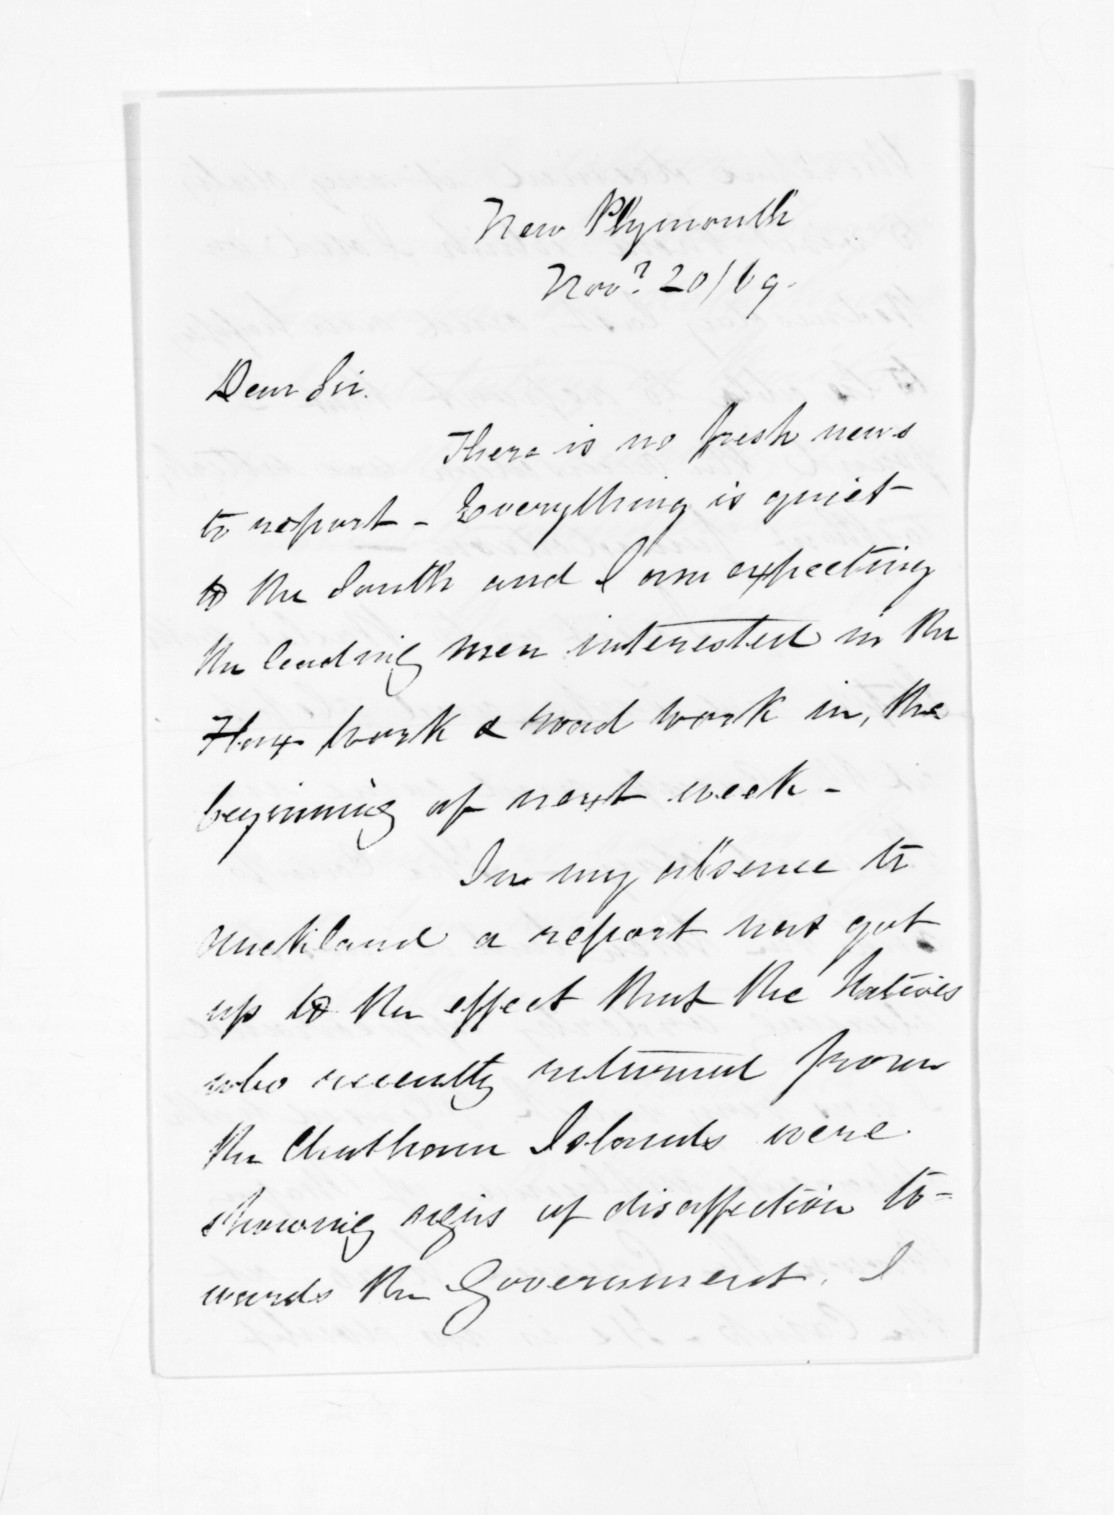 New Plymouth
Novr. 20/69.
Dear Sir.
There is no fresh news
to report - Everything is quiet
to the South and I am expecting
the leading men interested in the
Flax work & road work in, the
beginning of next week -
In my absence to
Auckland a report was got
up to the effect that the Natives
who recently returned from
the Chatham Islands were
showing signs of disaffection to-
wards the Government. I